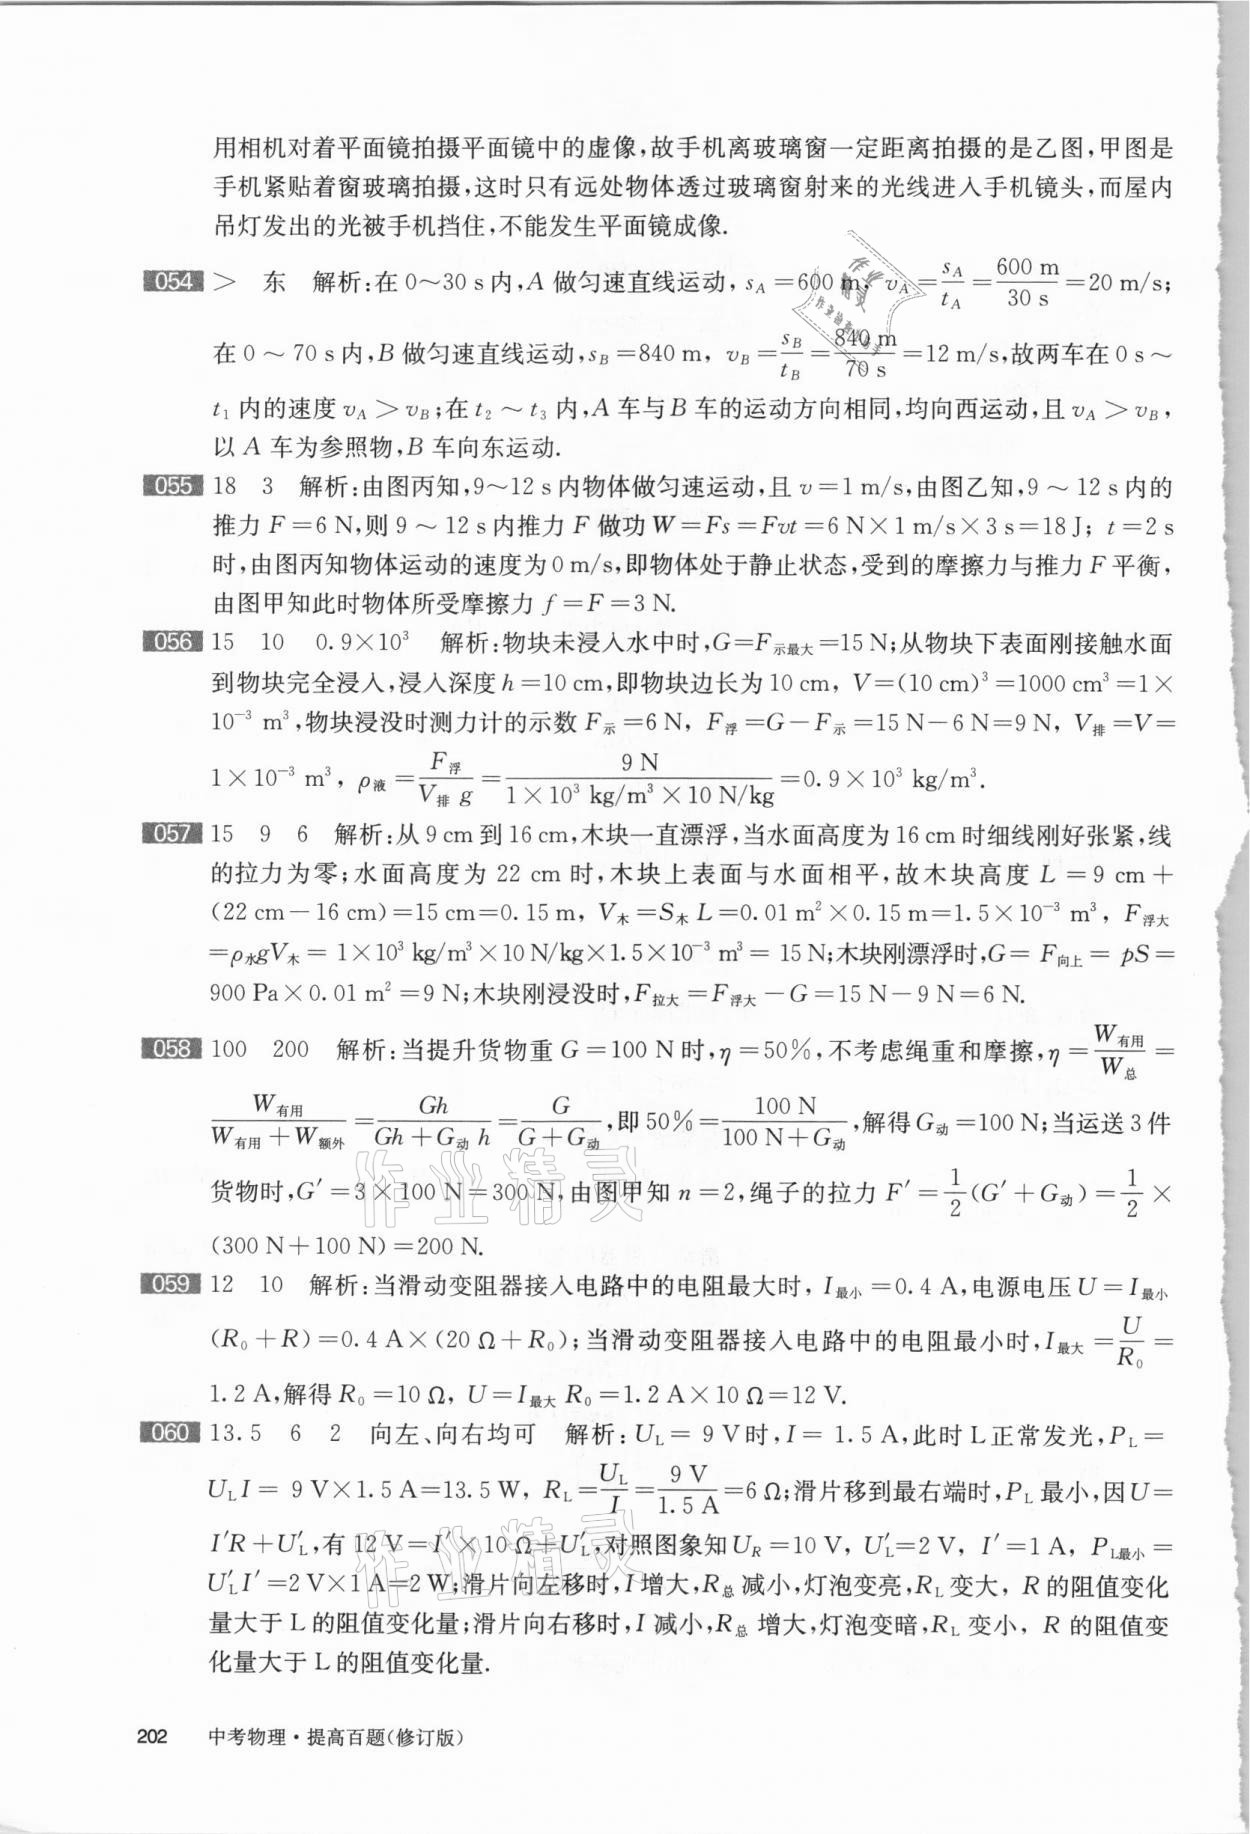 用相机对着平面镜拍摄平面镜中的虚像,故手机离玻璃窗一定距离拍摄的是乙图,甲图是
手机紧贴着窗玻璃拍摄,这时只有远处物体透过玻璃窗射来的光线进入手机镜头,而屋内
吊灯发出的光被手机挡住,不能发生平面镜成像.
054 > 东 解析:在 0～30 s 内,A 做匀速直线运动, s_A=600 m, v_A=s_A/t_A=600 m/30 s=20 m/s;
在 0～70 s 内,B 做匀速直线运动,s_B=840 m, v_B=s_B/t_B=840 m/70 s=12 m/s,故两车在 0 s～
t₁ 内的速度 v_A>v_B;在 t₂～t₃ 内,A 车与 B 车的运动方向相同,均向西运动,且 v_A>v_B,
以 A 车为参照物,B 车向东运动.
055 18 3 解析:由图丙知,9～12 s 内物体做匀速运动,且 v=1 m/s,由图乙知,9～12 s 内的
推力 F=6 N,则 9～12 s 内推力 F 做功 W=Fs=Fvt=6 N×1 m/s×3 s=18 J; t=2 s
时,由图丙知物体运动的速度为 0 m/s,即物体处于静止状态,受到的摩擦力与推力 F 平衡,
由图甲知此时物体所受摩擦力 f=F=3 N.
056 15 10 0.9×10³ 解析:物块未浸入水中时,G=F示最大=15 N;从物块下表面刚接触水面
到物块完全浸入,浸入深度 h=10 cm,即物块边长为 10 cm, V=(10 cm)³=1000 cm³=1×
10⁻³ m³,物块浸没时测力计的示数 F示=6 N, F浮=G-F示=15 N-6 N=9 N, V排=V=
1×10⁻³ m³, ρ液=F浮/V排 g=9 N/1×10³ kg/m³×10 N/kg=0.9×10³ kg/m³.
057 15 9 6 解析:从 9 cm 到 16 cm,木块一直漂浮,当水面高度为 16 cm 时细线刚好张紧,线
的拉力为零;水面高度为 22 cm 时,木块上表面与水面相平,故木块高度 L=9 cm+
(22 cm-16 cm)=15 cm=0.15 m, V木=S木 L=0.01 m²×0.15 m=1.5×10⁻³ m³, F浮大
=ρ水gV木=1×10³ kg/m³×10 N/kg×1.5×10⁻³ m³=15 N;木块刚漂浮时,G=F向上=pS=
900 Pa×0.01 m²=9 N;木块刚浸没时,F拉大=F浮大-G=15 N-9 N=6 N.
058 100 200 解析:当提升货物重 G=100 N 时,η=50%,不考虑绳重和摩擦,η=W有用/W总=
W有用/W有用+W额外=Gh/Gh+G动 h=G/G+G动,即 50%=100 N/100 N+G动,解得 G动=100 N;当运送 3 件
货物时,G′=3×100 N=300 N,由图甲知 n=2,绳子的拉力 F′=1/2(G′+G动)=1/2×
(300 N+100 N)=200 N.
059 12 10 解析:当滑动变阻器接入电路中的电阻最大时, I最小=0.4 A,电源电压 U=I最小
(R₀+R)=0.4 A×(20 Ω+R₀);当滑动变阻器接入电路中的电阻最小时,I最大=U/R₀=
1.2 A,解得 R₀=10 Ω, U=I最大 R₀=1.2 A×10 Ω=12 V.
060 13.5 6 2 向左、向右均可 解析:U_L=9 V时,I=1.5 A,此时 L正常发光,P_L=
U_L I=9 V×1.5 A=13.5 W, R_L=U_L/I=9 V/1.5 A=6 Ω;滑片移到最右端时,P_L 最小,因 U=
I′R+U′_L,有 12 V=I′×10 Ω+U′_L,对照图象知 U_R=10 V, U′_L=2 V, I′=1 A, P_L最小=
U′_L I′=2 V×1 A=2 W;滑片向左移时,I 增大,R总 减小,灯泡变亮,R_L 变大, R 的阻值变化
量大于 L 的阻值变化量;滑片向右移时,I 减小,R总 增大,灯泡变暗,R_L 变小, R 的阻值变
化量大于 L 的阻值变化量.
202 中考物理·提高百题(修订版)
作业精灵
作业精灵
作业精灵